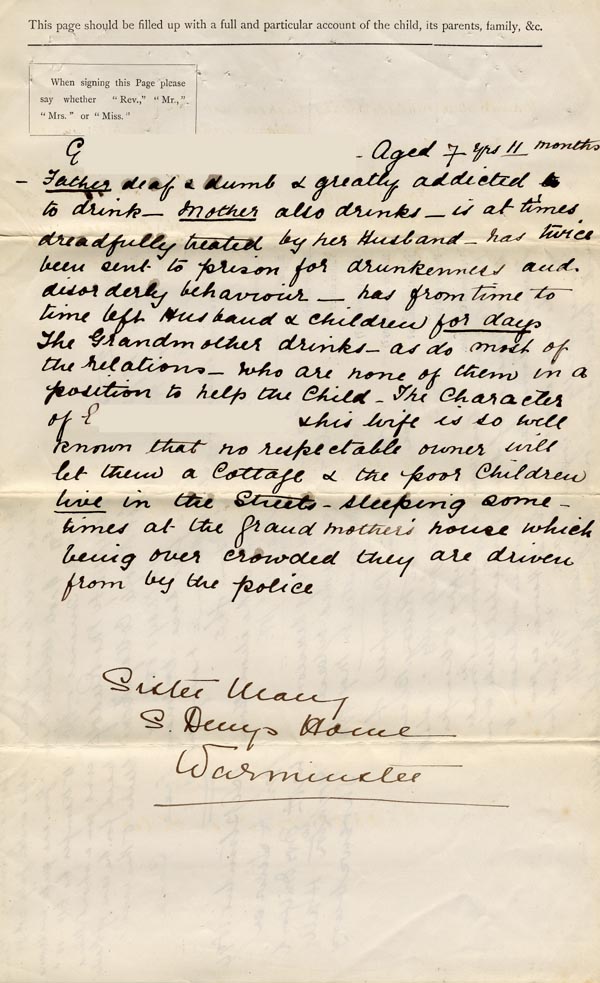 This page should be filled up with a full and particular account of the child, its parents, family, &c.
When signing this Page please
say whether "Rev.," "Mr.,"
"Mrs." or "Miss."
G - Aged 7 yrs 11 months
- Father deaf & dumb & greatly addicted to
to drink - Mother also drinks - is at times
dreadfully treated by her Husband - has twice
been sent to prison for drunkenness and
disorderly behaviour - has from time to
time left Husband & children for days
The Grandmother drinks - as do most of
the relations - who are none of them in a
position to help the Child - The Character
of E & his wife is so well
known that no respectable owner will
let them a Cottage & the poor Children
live in the Streets - sleeping some-
times at the grand mother's house which
being over crowded they are driven
from by the police
Sister Mary
S. Denys Home
Warminster